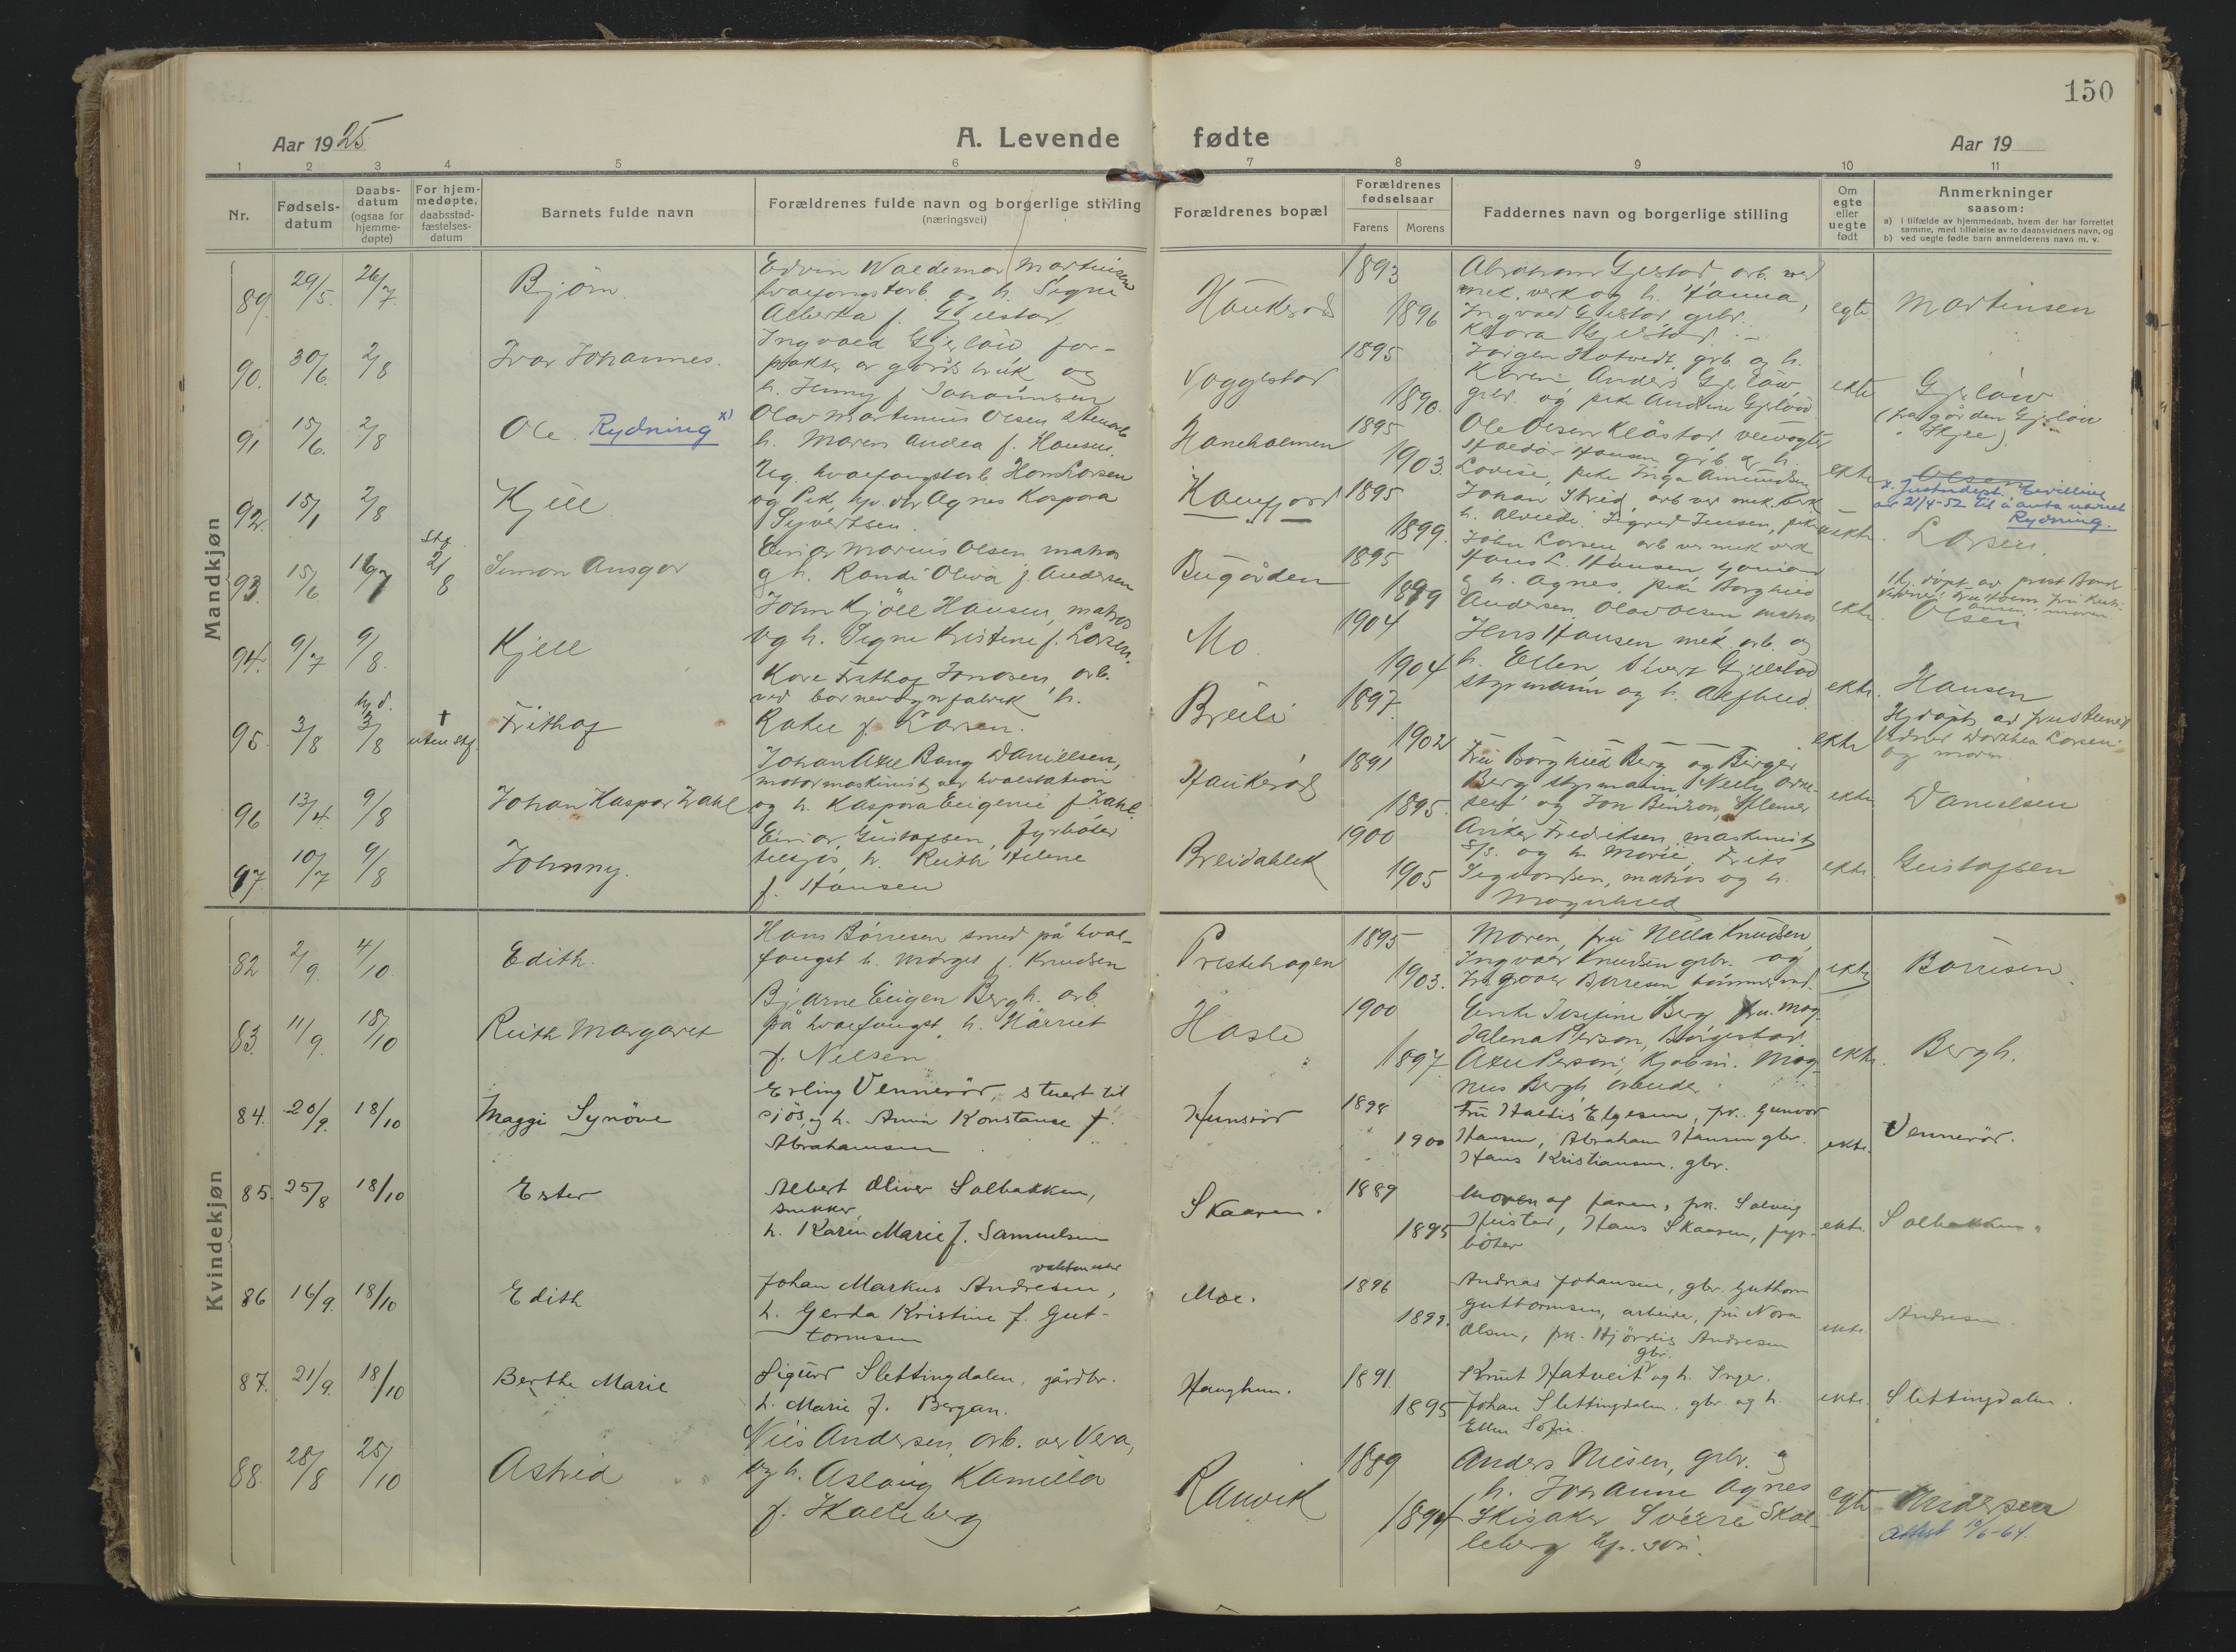 150
Aar 1925
A. Levende fødte
Aar 19
1 2 3 4 5 6 7 8 9 10 11
Nr.
Fødsels-
datum
Daabs-
datum
(ogsaa for
hjemme-
døpte)
For hjem-
medøpte.
daabsstad-
fæstelses-
datum
Barnets fulde navn
Forældrenes fulde navn og borgerlige stilling
(næringsvei)
Forældrenes bopæl
Forældrenes
fødselsaar
Farens Morens
Faddernes navn og borgerlige stilling
Om
egte
eller
uegte
født
Anmerkninger
saasom:
a) i tilfælde av hjemmedaab, hvem der har forrettet
samme, med tilføielse av to daabsvidners navn, og
b) ved uegte fødte barn anmelderens navn m. v.
Mandkjøn
89. 29/5. 26/7 Bjørn.
Edvin Waldemar Martinsen
hvalfangstarb. og h. Signe
Alberta f. Gjelstad.
Haukerød
1893
1896
Abraham Gjelstad arb. ved
mek. verk og h. Hanna,
Ingvald Gjelstad gbr.
Klara Gjelstad.
egte
Martinsen
90. 30/6. 2/8 Ivar Johannes.
Ingvald Gjerløw for-
pakter av gårdsbruk og
h. Jenny f. Johannsen
Voggestad
1895
1890.
Jørgen Hotvedt, grb. og h.
Karen, Anders Gjerløw
gbr. og
ekte
Gjerløw
(fra gården Gjerløw
i Skjee).
91 15/6. 2/8 Ole. Rydning x)
Olav Martinius Olsen stenarb
h. Maren Andrea f. Hansen.
Haneholmen
1895
1903.
Ole Olsen Klåstad veivogter
Haldor Hansen grb. og h.
Lovise, pike Inga Amundsen
ekte
Olsen
x. Justisdept. bevilling
av 21/4-52 til å anta navnet
Rydning.
92. 15/1 2/8 Kjell
Ug. hvalfangstarb. Hans Larsen
og Pike, Agnes Kaspara
Syvertsen.
Kamfjord
1895
1899.
Johan Strid, arb. ved mek. verk
h. Alvilde. Sigrid Jensen, pike
John Larsen arb ved mek verk
uekte.
Larsen.
93. 15/6 16/7 Stf. 2/8 Simon Ansgar
Einar Marius Olsen matros
og h. Randi Oliva f. Andersen
Bugården
1895
1899
Hans L. Hansen
og h. Agnes, pike Borghild
Andersen, Olav Olsen matros
ekte
Olsen
94. 9/7 9/8. Kjell
John Kjöll Hansen, matros
og h. Signe Kristine f. Larsen.
Mo.
1904
1904
Jens Hansen mek. arb. og
h. Ellen, Sivert Gjelstad
styrmann og h. Alfhild.
ekte.
Hansen
95. 3/8 hj.d. 3/8 † uten stf. Frithof
Kåre Frithof Jonasen, arb.
ved h.
Rakel f. Larsen.
Breili
1897
1902
ekte
Hj.døpt av
Vidner Dorthea Larsen
og moren.
96 13/4 9/8 Johan Kaspar Zahl
Johan Axel Bang Daniellsen,
motormaskinist ved hvalstation
og h. Kaspara Eugenie f. Zahl.
Haukerød
1891
1895.
Fru Borghild Berg og Birger
Berg styrmann, Nelly
og Jon
ekte
Danielsen
97. 10/7 9/8 Johnny.
Einar Gustafsen, fyrbøter
tilsjøs, h. Ruth Helene
f. Hansen
Breidablik
1900
1905
Anker Fredriksen, maskinist
og h Marie, Frits
Sigvardsen, matros og h.
Magnhild
ekte.
Gustafsen
Kvindekjøn
82 2/9. 4/10. Edith.
Hans Børresen smed på hval-
fangst h. Margit f. Knudsen
Prestehagen
1895
1903.
Moren, fru Nella Knudsen
Ingvald Knudsen gbr. og
Ingvald Børresen tømmermd.
ekte
Børresen.
83. 11/9. 18/10 Ruth Margaret
Bjarne Eugen Bergh. arb.
på hvalfangst, h. Harriet
f. Nilsen
Hasle
1900
1897
Enke Josefine Berg fru. Mag-
dalena Person, Borgestad.
Axel Person, Kjøbm. Mag-
nus Bergh arbeider.
ekte.
Bergh.
84. 20/9. 18/10 Maggi Synöve
Erling Vennerød, stuert til
sjös, og h. Anna Konstanse f.
Abrahamsen
Hunsrød
1898
1900
Fru Haldis Elgesem, fr. Gunvor
Hansen, Abraham Hansen gbr.
Hans Kristiansen, gbr.
ekte.
Vennerød.
85. 25/8 18/10 Ester
Albert Oliver Solbakken,
snekker,
h. Karen Marie f. Samuelsen
Skaaren.
1889
1895
Moren og faren, frk. Solveig
Heistad, Hans Skaaren, fyr-
böter
ekte.
Solbakken.
86 16/9. 18/10 Edith
Johan Markus Andresen, vaktmester
h. Gerda Kristine f. Gut-
tormsen
Moe.
1896
1899.
Andreas Johansen, gbr. Guthorm
Guttormsen, arbeider, fru Nora
Olsen, frk. Hjørdis Andresen
ekte.
Andresen.
87. 21/9. 18/10 Berthe Marie
Sigurd Slettingdalen, gårdbr.
h. Marie f. Bergan.
Haughem.
1891
1895
Knut Hatveit gbr. og h. Inger.
Johan Slettingdalen, gbr. og h.
Ellen Sofie.
ekte.
Slettingdalen.
88. 28/8 25/10 Astrid
Nils Andersen, arb. ved Vera,
og h. Aslaug Kamilla
f. Skalleberg
Ranvik
1889
1894
Anders Nilsen, gbr. og
h. Johanne Agnes
Skisaker Sverre Skal-
leberg hj. søn.
egte
Andersen
Attest 10/6-64.